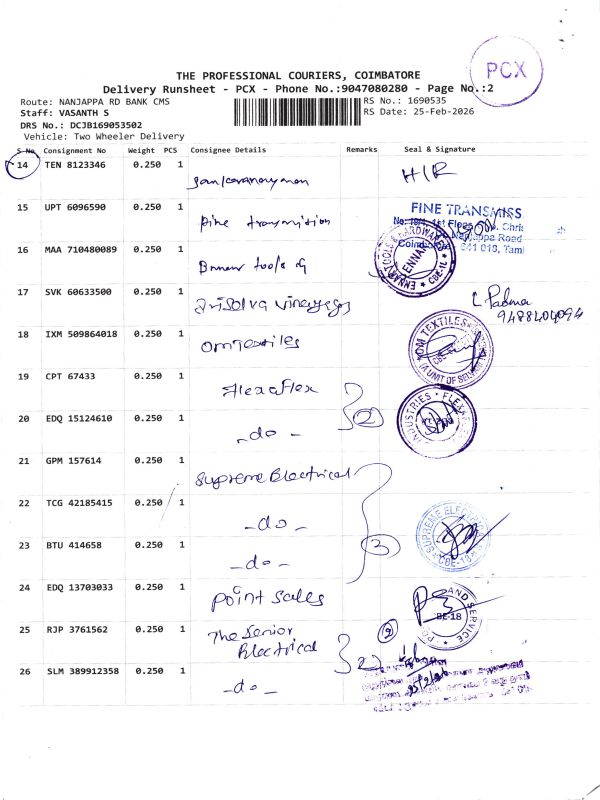 PCX
THE PROFESSIONAL COURIERS, COIMBATORE
Delivery Runsheet - PCX - Phone No.:9047080280 - Page No.:2
Route: NANJAPPA RD BANK CMS
RS No.: 1690535
Staff: VASANTH S
RS Date: 25-Feb-2026
DRS No.: DCJB169053502
Vehicle: Two Wheeler Delivery
S No Consignment No Weight PCS Consignee Details Remarks Seal & Signature
14 TEN 8123346 0.250 1 H/R
15 UPT 6096590 0.250 1 Fine transmission
FINE TRANSMISS
1st Floor
Nanjappa Road
641 018, Tami
16 MAA 710480089 0.250 1 tools
CBE-1
17 SVK 60633500 0.250 1 vinayagar
L Padma
9488404094
18 IXM 509864018 0.250 1 Om Textiles
OM TEXTILES
(A UNIT OF
19 CPT 67433 0.250 1 Flexaflex
20 EDQ 15124610 0.250 1 -do- 2
INDUSTRIES
21 GPM 157614 0.250 1 Supreme Electrical
22 TCG 42185415 0.250 1 -do-
23 BTU 414658 0.250 1 -do- 3
SUPREME
CBE-18
24 EDQ 13703033 0.250 1 Point Sales
AND SERVICE
BE-18
25 RJP 3761562 0.250 1 The Senior
Electrical 2 2
26 SLM 389912358 0.250 1 -do-